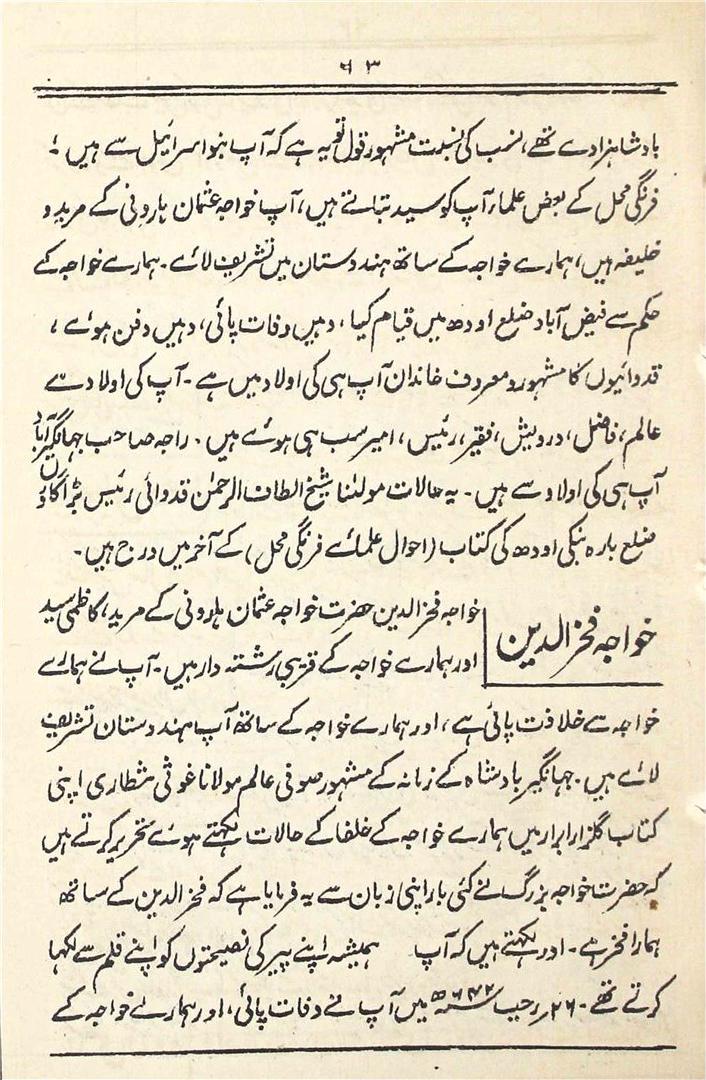 ۶۳
بادشاہزادے تھے، نسب کی نسبت مشہور قول تو یہ ہے کہ آپ بنو اسرائیل سے ہیں ؛
فرنگی محل کے بعض علماء آپ کو سید بتاتے ہیں، آپ خواجہ عثمان ہارونی کے مرید و
خلیفہ ہیں، ہمارے خواجہ کے ساتھ ہندوستان میں تشریف لائے۔ ہمارے خواجہ کے
حکم سے فیض آباد ضلع اودھ میں قیام کیا، وہیں وفات پائی، وہیں دفن ہوئے ،
قدوائیوں کا مشہور و معروف خاندان آپ ہی کی اولاد میں ہے۔ آپ کی اولاد سے
عالم، فاضل، درویش، فقیر، رئیس، امیر سب ہی ہوئے ہیں۔ راجہ صاحب جہانگیرآباد
آپ ہی کی اولاد سے ہیں۔ یہ حالات مولٰنا شیخ الطاف الرحمٰن قدوائی رئیس بڑاگاؤں
ضلع بارہ بنکی اودھ کی کتاب (احوال علمائے فرنگی محل) کے آخر میں درج ہیں۔
خواجہ فخر الدین
خواجہ فخر الدین حضرت خواجہ عثمان ہارونی کے مرید، کاظمی سید
اور ہمارے خواجہ کے قریبی رشتہ دار ہیں۔ آپ نے ہمارے
خواجہ سے خلافت پائی ہے، اور ہمارے خواجہ کے ساتھ آپ ہندوستان تشریف
لائے ہیں۔ جہانگیر بادشاہ کے زمانہ کے مشہور صوفی عالم مولانا غوثی شطاری اپنی
کتاب گلزار ابرار میں ہمارے خواجہ کے خلفا کے حالات لکھتے ہوئے تحریر کرتے ہیں
کہ حضرت خواجہ بزرگ نے کئی بار اپنی زبان سے یہ فرمایا ہے کہ فخر الدین کے ساتھ
ہمارا فخر ہے۔ اور لکھتے ہیں کہ آپ ہمیشہ اپنے پیر کی نصیحتوں کو اپنے قلم سے لکھا
کرتے تھے۔ ۲۶ رجب ۶۴۲ھ میں آپ نے وفات پائی، اور ہمارے خواجہ کے